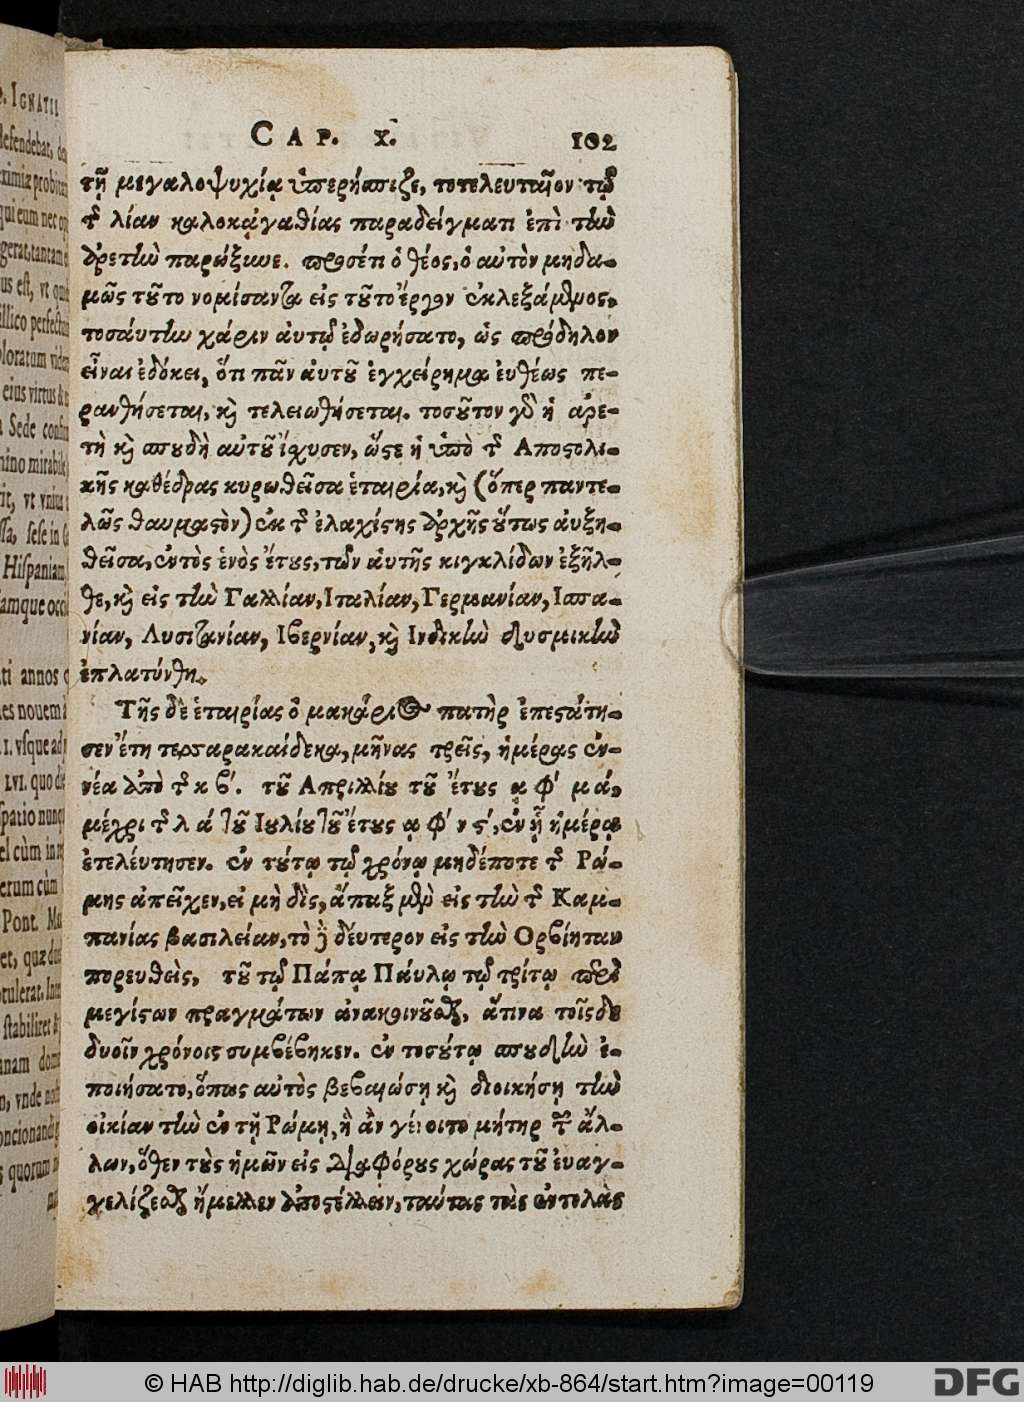 CAP. X. 102
τῇ μεγαλοψυχίᾳ ὑπερήσπιζε, τοτελευταῖον τῷ
τῆς λίαν καλοκᾀγαθίας παραδείγματι ἐπὶ τὴν
ἀρετὴν παρώξυνε. προσέτι ὁ θέος, ὁ αὐτὸν μηδα-
μῶς τοῦτο νομίσαντα εἰς τοῦτο ἔργον ἐκλεξάμενος,
τοσάυτην χάριν ἀυτῷ ἐδωρήσατο, ὡς πρόδηλον
εἶναι ἐδόκει, ὅτι πᾶν ἀυτοῦ ἐγχείρημα ἐυθέως πε-
ρανθήσεται, καὶ τελειωθήσεται. τοσοῦτον γὰρ ἡ ἀρε-
τὴ καὶ σπουδὴ αὐτοῦ ἴχυσεν, ὥστε ἡ ὑπὸ τῆς Αποστολι-
κῆς καθέδρας κυρωθεῖσα ἑταιρία, καὶ (ὅπερ παντε-
λῶς θαυμαστὸν) ἐκ τῆς ἐλαχίστης ἀρχῆς οὕτως ἀυξη-
θεῖσα, ἐντὸς ἑνὸς ἔτους, τῶν ἀυτῆς κιγκλίδων ἐξῆλ-
θε, καὶ εἰς τὴν Γαλλίαν, Ιταλίαν, Γερμανίαν, Ισπα-
νίαν, Λυσιτανίαν, Ιβερνίαν, καὶ Ινδικὴν δυσμικὴν
ἐπλατύνθη.
Τῆς δὲ ἑταιρίας ὁ μακάριος πατὴρ ἐπεστάτη-
σεν ἔτη τεσσαρακαίδεκα, μῆνας τρεῖς, ἡμέρας ἐν-
νέα ἀπὸ τῆς κ β΄. τοῦ Απριλλίου τοῦ ἔτους α φ΄ μ ά,
μέχρι τῆς λ ά τοῦ Ιουλίου τοῦ ἔτους α φ΄ ν ϛ΄, ἐν ᾗ ἡμέρᾳ
ἐτελέυτησεν. ἐν τούτῳ τῷ χρόνῳ μηδέποτε τῆς Ρώ-
μης ἀπεῖχεν, εἰ μὴ δὶς, ἅπαξ μὲν εἰς τὴν τῆς Καμ-
πανίας βασιλείαν, τὸ δὲ δέυτερον εἰς τὴν Ορβίηταν
πορευθεὶς, τοῦ τῷ Πάπᾳ Πάυλῳ τῷ τρίτῳ περὶ
μεγίστων πραγμάτων ἀνακοινοῦσθαι, ἅτινα τοῖς δε
δυοῖν χρόνοις συμβέβηκεν. ἐν τοσούτῳ σπουδὴν ἐ-
ποιήσατο, ὅπως αὐτὸς βεβαιώσῃ καὶ διοικήσῃ τὴν
οἰκίαν τὴν ἐν τῇ Ρώμῃ, ἣ ἂν γένοιτο μήτηρ τῶν ἄλ-
λων, ὅθεν τοὺς ἡμῶν εἰς διαφόρους χώρας τοῦ ἐυαγ-
γελίζεσθαι ἤμελλεν ἀποστέλλειν, ταύτας τὰς ἐντολὰς
© HAB http://diglib.hab.de/drucke/xb-864/start.htm?image=00119
DFG